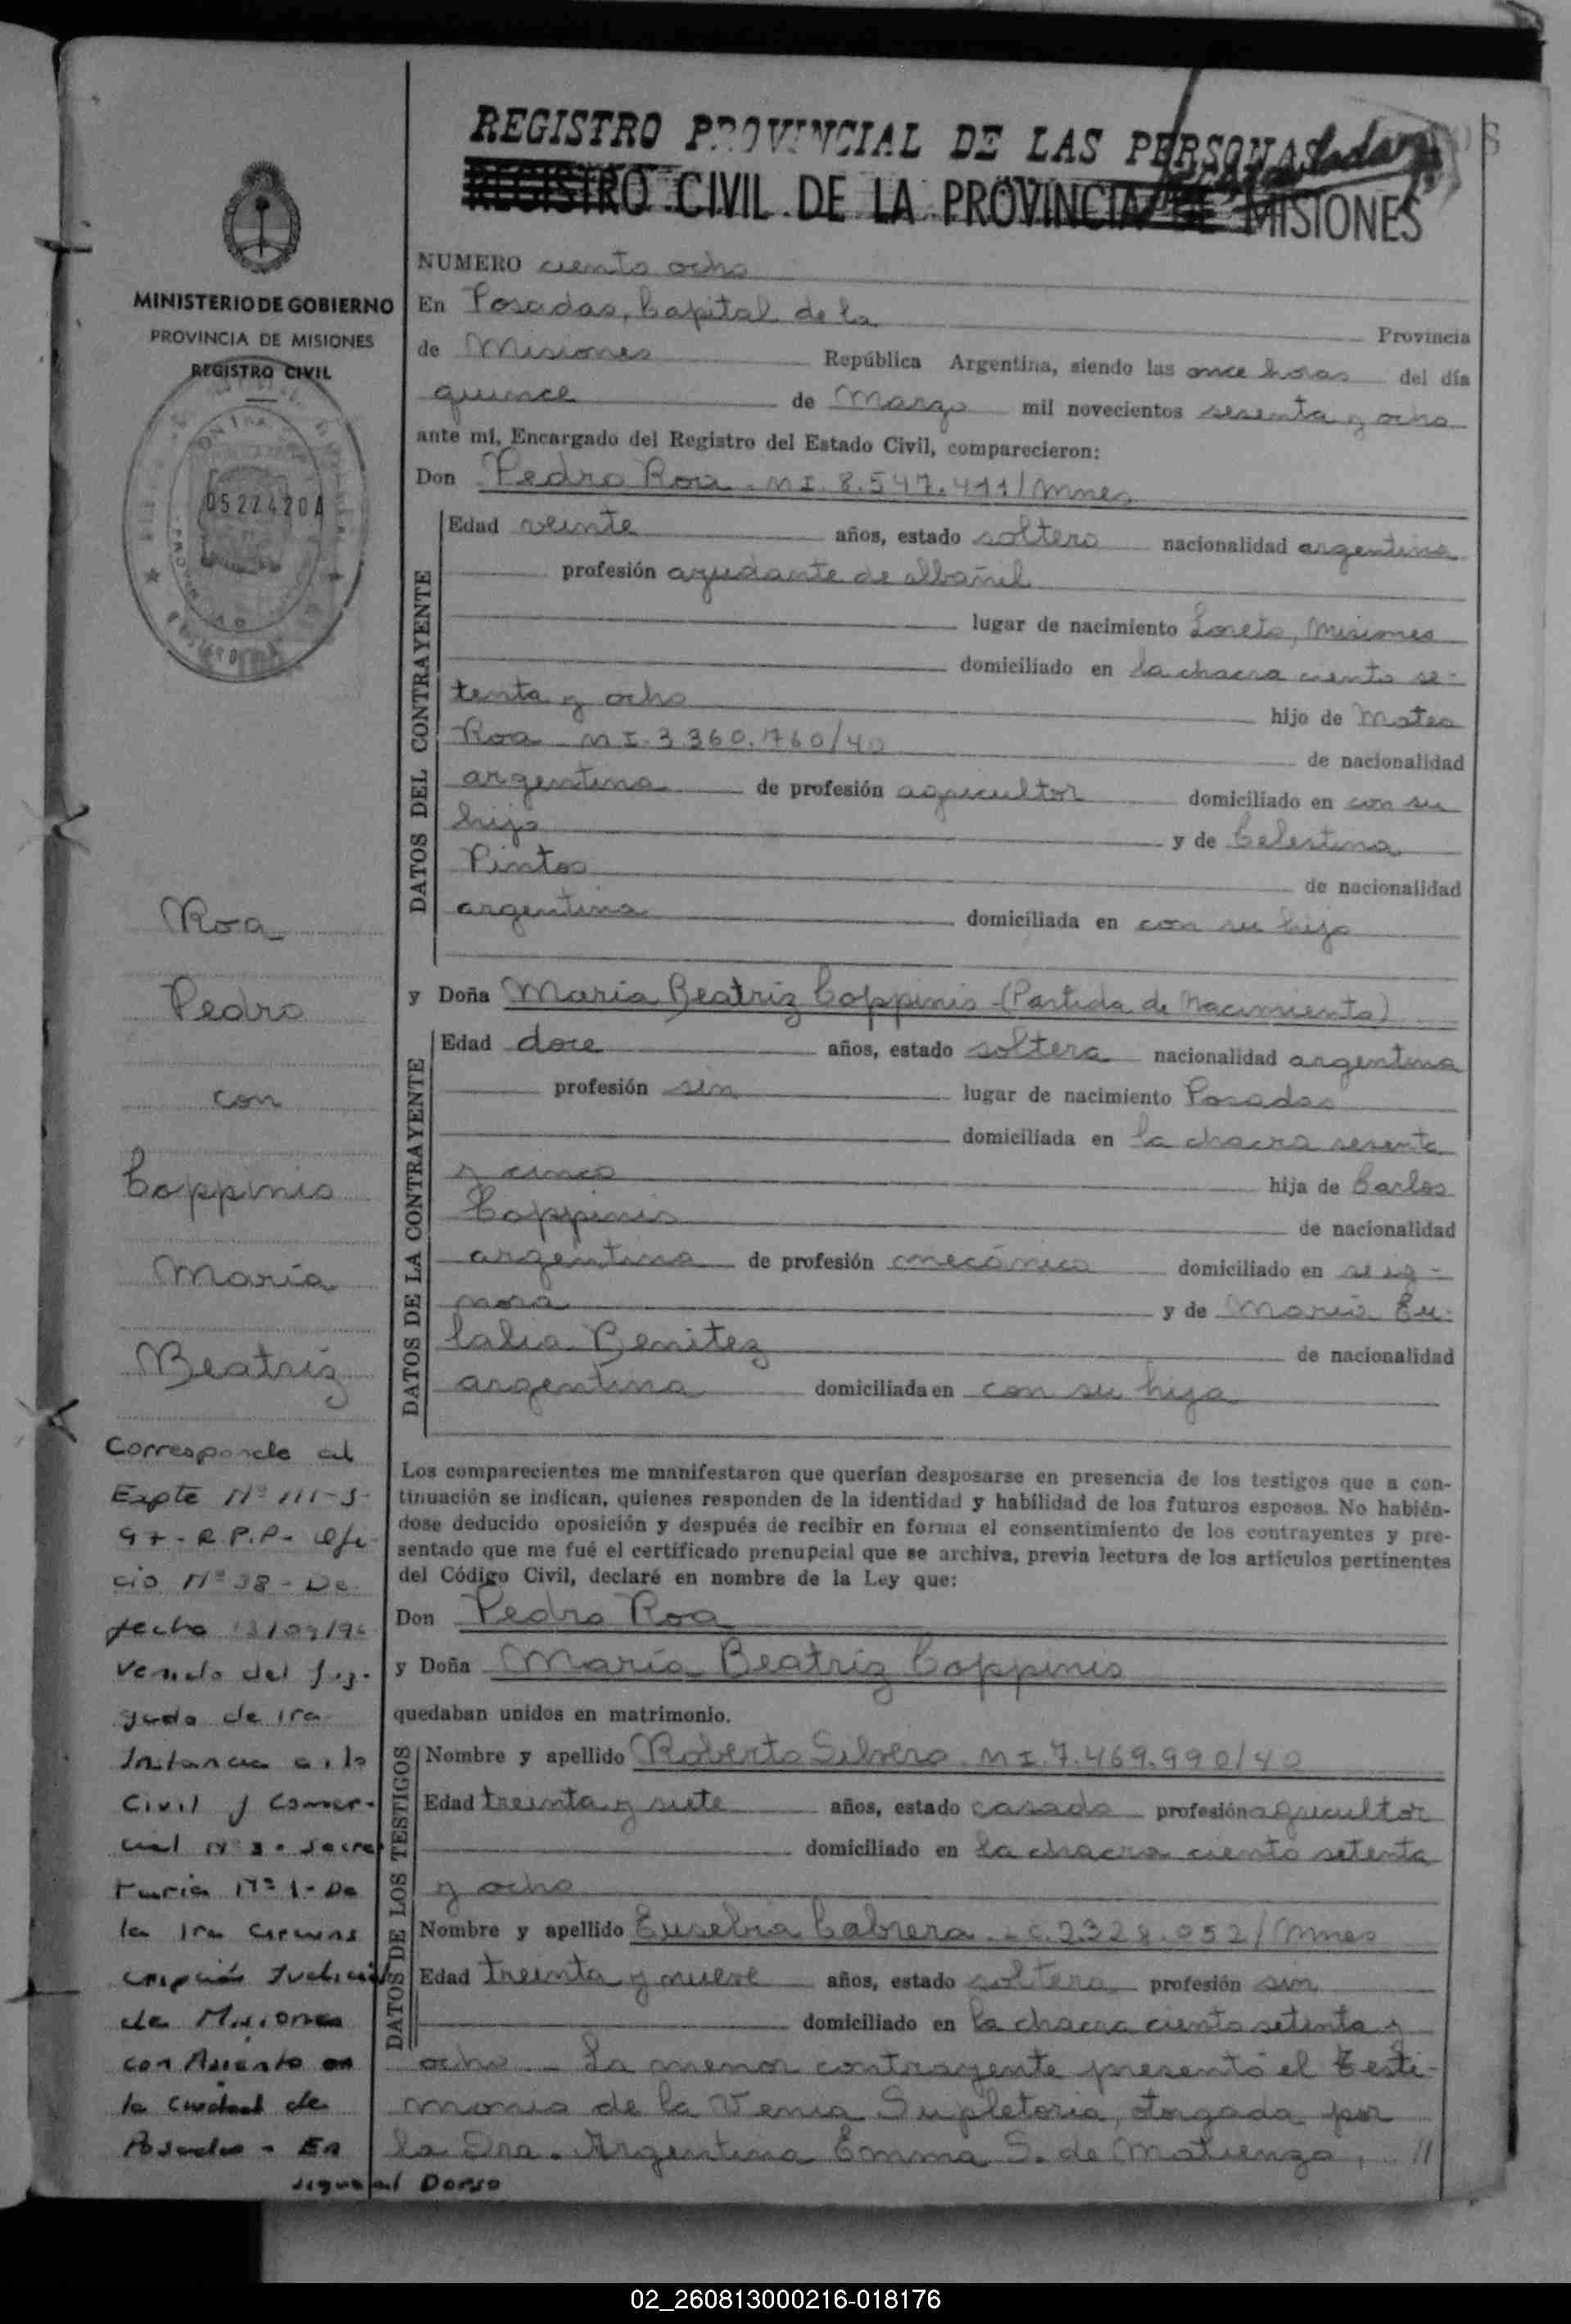 REGISTRO PROVINCIAL DE LAS PERSONAS
REGISTRO CIVIL DE LA PROVINCIA DE MISIONES
MINISTERIO DE GOBIERNO
PROVINCIA DE MISIONES
REGISTRO CIVIL
0522420A
NUMERO ciento ocho
En Posadas, Capital de la Provincia
de Misiones República Argentina, siendo las once horas del día
quince de Marzo mil novecientos sesenta y ocho
ante mí, Encargado del Registro del Estado Civil, comparecieron:
Don Pedro Roa. M I. 8.547.411/Mnes
DATOS DEL CONTRAYENTE
Edad veinte años, estado soltero nacionalidad argentina
profesión ayudante de albañil
lugar de nacimiento Loreto, Misiones
domiciliado en la chacra ciento se-
tenta y ocho hijo de Mateo
Roa M I. 3.360.760/40 de nacionalidad
argentina de profesión agricultor domiciliado en con su
hijo y de Celestina
Pintos de nacionalidad
argentina domiciliada en con su hijo
y Doña María Beatriz Coppinis (Partida de Nacimiento)
DATOS DE LA CONTRAYENTE
Edad doce años, estado soltera nacionalidad argentina
profesión sin lugar de nacimiento Posadas
domiciliada en la chacra sesenta
y cinco hija de Carlos
Coppinis de nacionalidad
argentina de profesión mecánico domiciliado en se ig-
nora y de María Eu-
lalia Benitez de nacionalidad
argentina domiciliada en con su hija
Los comparecientes me manifestaron que querían desposarse en presencia de los testigos que a con-
tinuación se indican, quienes responden de la identidad y habilidad de los futuros esposos. No habién-
dose deducido oposición y después de recibir en forma el consentimiento de los contrayentes y pre-
sentado que me fué el certificado prenupcial que se archiva, previa lectura de los artículos pertinentes
del Código Civil, declaré en nombre de la Ley que:
Don Pedro Roa
y Doña María Beatriz Coppinis
quedaban unidos en matrimonio.
DATOS DE LOS TESTIGOS
Nombre y apellido Roberto Silvero. M I. 7.469.990/40
Edad treinta y siete años, estado casado profesión agricultor
domiciliado en la chacra ciento setenta
y ocho
Nombre y apellido Eusebia Cabrera. L C. 2.328.052/Mnes
Edad treinta y nueve años, estado soltera profesión sin
domiciliado en la chacra ciento setenta y
ocho - La menor contrayente presentó el Testi-
monio de la Venia Supletoria, otorgada por
la Dra. Argentina Emma S. de Matienzo, //
Roa
Pedro
con
Coppinis
María
Beatriz
Corresponde al
Expte Nº 111-J-
97- R.P.P- Ofi-
cio Nº 38 - De
fecha
Venido del Juz-
gado de 1ra
Instancia en lo
Civil y Comer-
cial Nº 3 - Secre
taría Nº 1 - De
la 1ra Circuns
cripción Judicial
de Misiones
con Asiento en
la Ciudad de
Posadas - En
sigue al Dorso
02_260813000216-018176